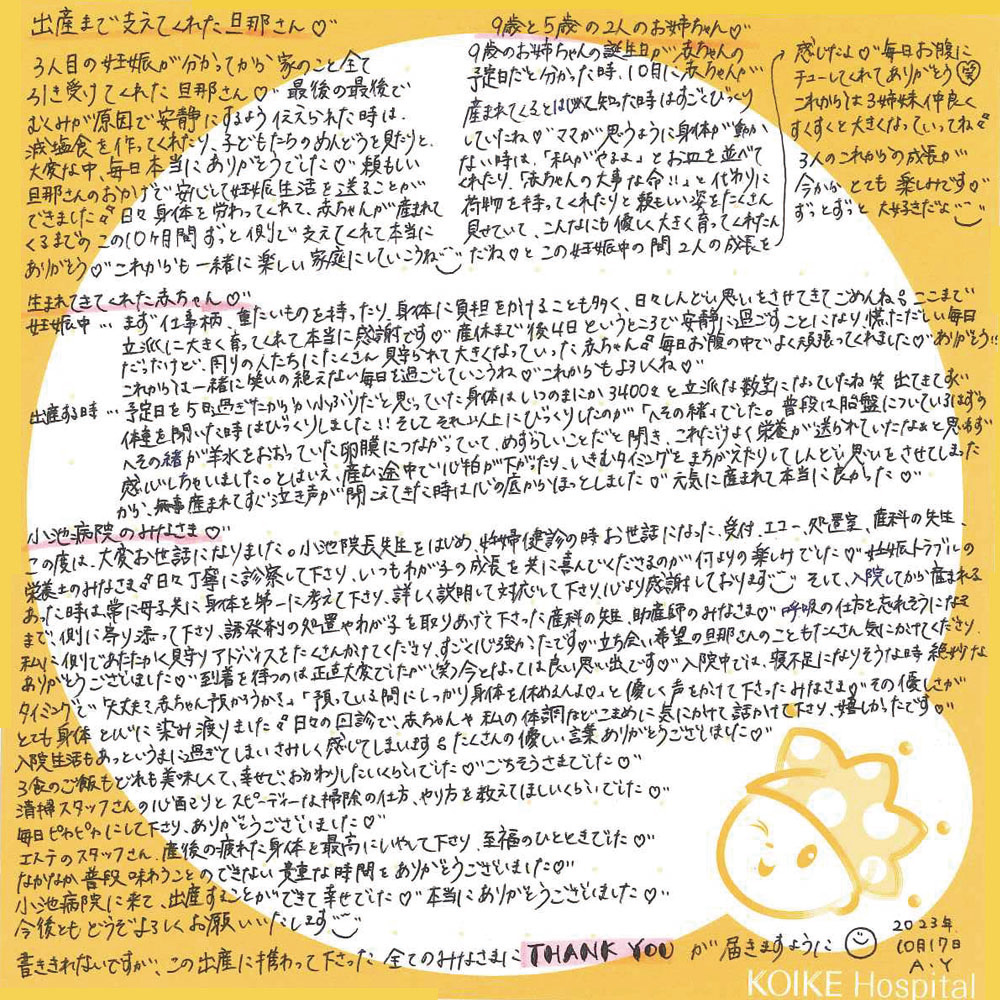 出産まで支えてくれた旦那さん♡
3人目の妊娠が分かってから家のこと全て
引き受けてくれた旦那さん♡ 最後の最後で
むくみが原因で安静にするよう伝えられた時は、
減塩食を作ってくれたり、子どもたちのめんどうを見たりと、
大変な中、毎日本当にありがとうでした♡ 頼もしい
旦那さんのおかげで安心して妊娠生活を送ることが
できました。日々身体を労わってくれて、赤ちゃんが産まれて
くるまでのこの10ヶ月間ずっと側で支えてくれて本当に
ありがとう♡これからも一緒に楽しい家庭にしていこうね
9歳と5歳の2人のお姉ちゃん♡
9歳のお姉ちゃんの誕生日が赤ちゃんの
予定日だと分かった時、10月に赤ちゃんが
産まれてくるとはじめて知った時はすごくびっくり
していたね♡ ママが思うように身体が動か
ない時は、「私がやるよ」とお皿を並べて
くれたり、「赤ちゃんの大事な命!!」と代わりに
荷物を持ってくれたりと頼もしい姿をたくさん
見せていて、こんなにも優しく大きく育ってくれたん
だね♡とこの妊娠中の間2人の成長を
感じたよ♡毎日お腹に
チューしてくれてありがとう(笑)
これからは3姉妹仲良く
すくすくと大きくなっていってね
3人のこれからの成長が
今からとても楽しみです♡
ずっとずっと大好きだよ
生まれてきてくれた赤ちゃん♡
妊娠中… まず仕事柄、重たいものを持ったり、身体に負担をかけることも多く、日々しんどい思いをさせてきてごめんね。ここまで
立派に大きく育ってくれて本当に感謝です♡ 産休まで後4日というところで安静に過ごすことになり、慌ただしい毎日
だったけど、周りの人たちにたくさん見守られて大きくなっていった赤ちゃん。毎日お腹の中でよく頑張ってくれました♡ありがとう!!
これからは一緒に笑いの絶えない毎日を過ごしていこうね♡これからもよろしくね♡
出産する時… 予定日を5日過ぎたから小ぶりだと思っていた身体はいつのまにか3400gと立派な数字になっていたね笑 出てきてすぐ
体重を聞いた時はびっくりしました!!そしてそれ以上にびっくりしたのが「へその緒」でした。普段は胎盤についているはずの
へその緒が羊水をおおっていた卵膜につながっていて、めずらしいことだと聞き、これだけよく栄養が送られていたなぁと思わず
感心しちゃいました。とはいえ、産む途中で心拍が下がったり、いきむタイミングをまちがえたりしてしんどい思いをさせてしまった
から、無事産まれてすぐ泣き声が聞こえてきた時は心の底からほっとしました♡ 元気に産まれて本当に良かった♡
小池病院のみなさま♡
この度は、大変お世話になりました。小池院長先生をはじめ、妊婦健診の時お世話になった、受付、エコー、処置室、産科の先生、
栄養士のみなさま。日々丁寧に診察して下さり、いつもわが子の成長を共に喜んでくださるのが何よりの楽しみでした♡ 妊娠トラブルの
あった時は、常に母子共に身体を第一に考えて下さり、詳しく説明して対応して下さり、心より感謝しております そして、入院してから産まれる
まで側に寄り添って下さり、誘発剤の処置やわが子を取りあげて下さった産科の先生、助産師のみなさま♡ 呼吸の仕方を忘れそうになる
私に側であたたかく見守りアドバイスをたくさんかけてくださり、すごく心強かったです♡立ち会い希望の旦那さんのこともたくさん気にかけてくださり、
ありがとうございました♡到着を待つのは正直大変でしたが(笑)今となっては良い思い出です♡入院中では、寝不足になりそうな時絶妙な
タイミングで「大丈夫?赤ちゃん預かろうか?」「預っている間にしっかり身体を休めるんよ。」と優しく声をかけて下さったみなさま♡その優しさが
とても身体と心に染み渡りました。日々の回診で、赤ちゃんや私の体調などこまめに気にかけて話かけて下さり、嬉しかったです♡
入院生活もあっというまに過ぎてしまいさみしく感じてしまいます。たくさんの優しい言葉ありがとうございました♡
3食のご飯もどれも美味しくて、幸せでおかわりしたいくらいでした♡ごちそうさまでした♡
清掃スタッフさんの心配りとスピーディーな掃除の仕方、やり方を教えてほしいくらいでした♡
毎日ピカピカにして下さり、ありがとうございました♡
エステのスタッフさん、産後の疲れた身体を最高にいやして下さり、至福のひとときでした♡
なかなか普段味わうことのできない貴重な時間をありがとうございました♡
小池病院に来て、出産することができて幸せでした♡本当にありがとうございました♡
今後ともどうぞよろしくお願いいたします
書ききれないですが、この出産に携わって下さった全てのみなさまに THANK YOU が届きますように
2023年
10月17日
A.Y
KOIKE Hospital